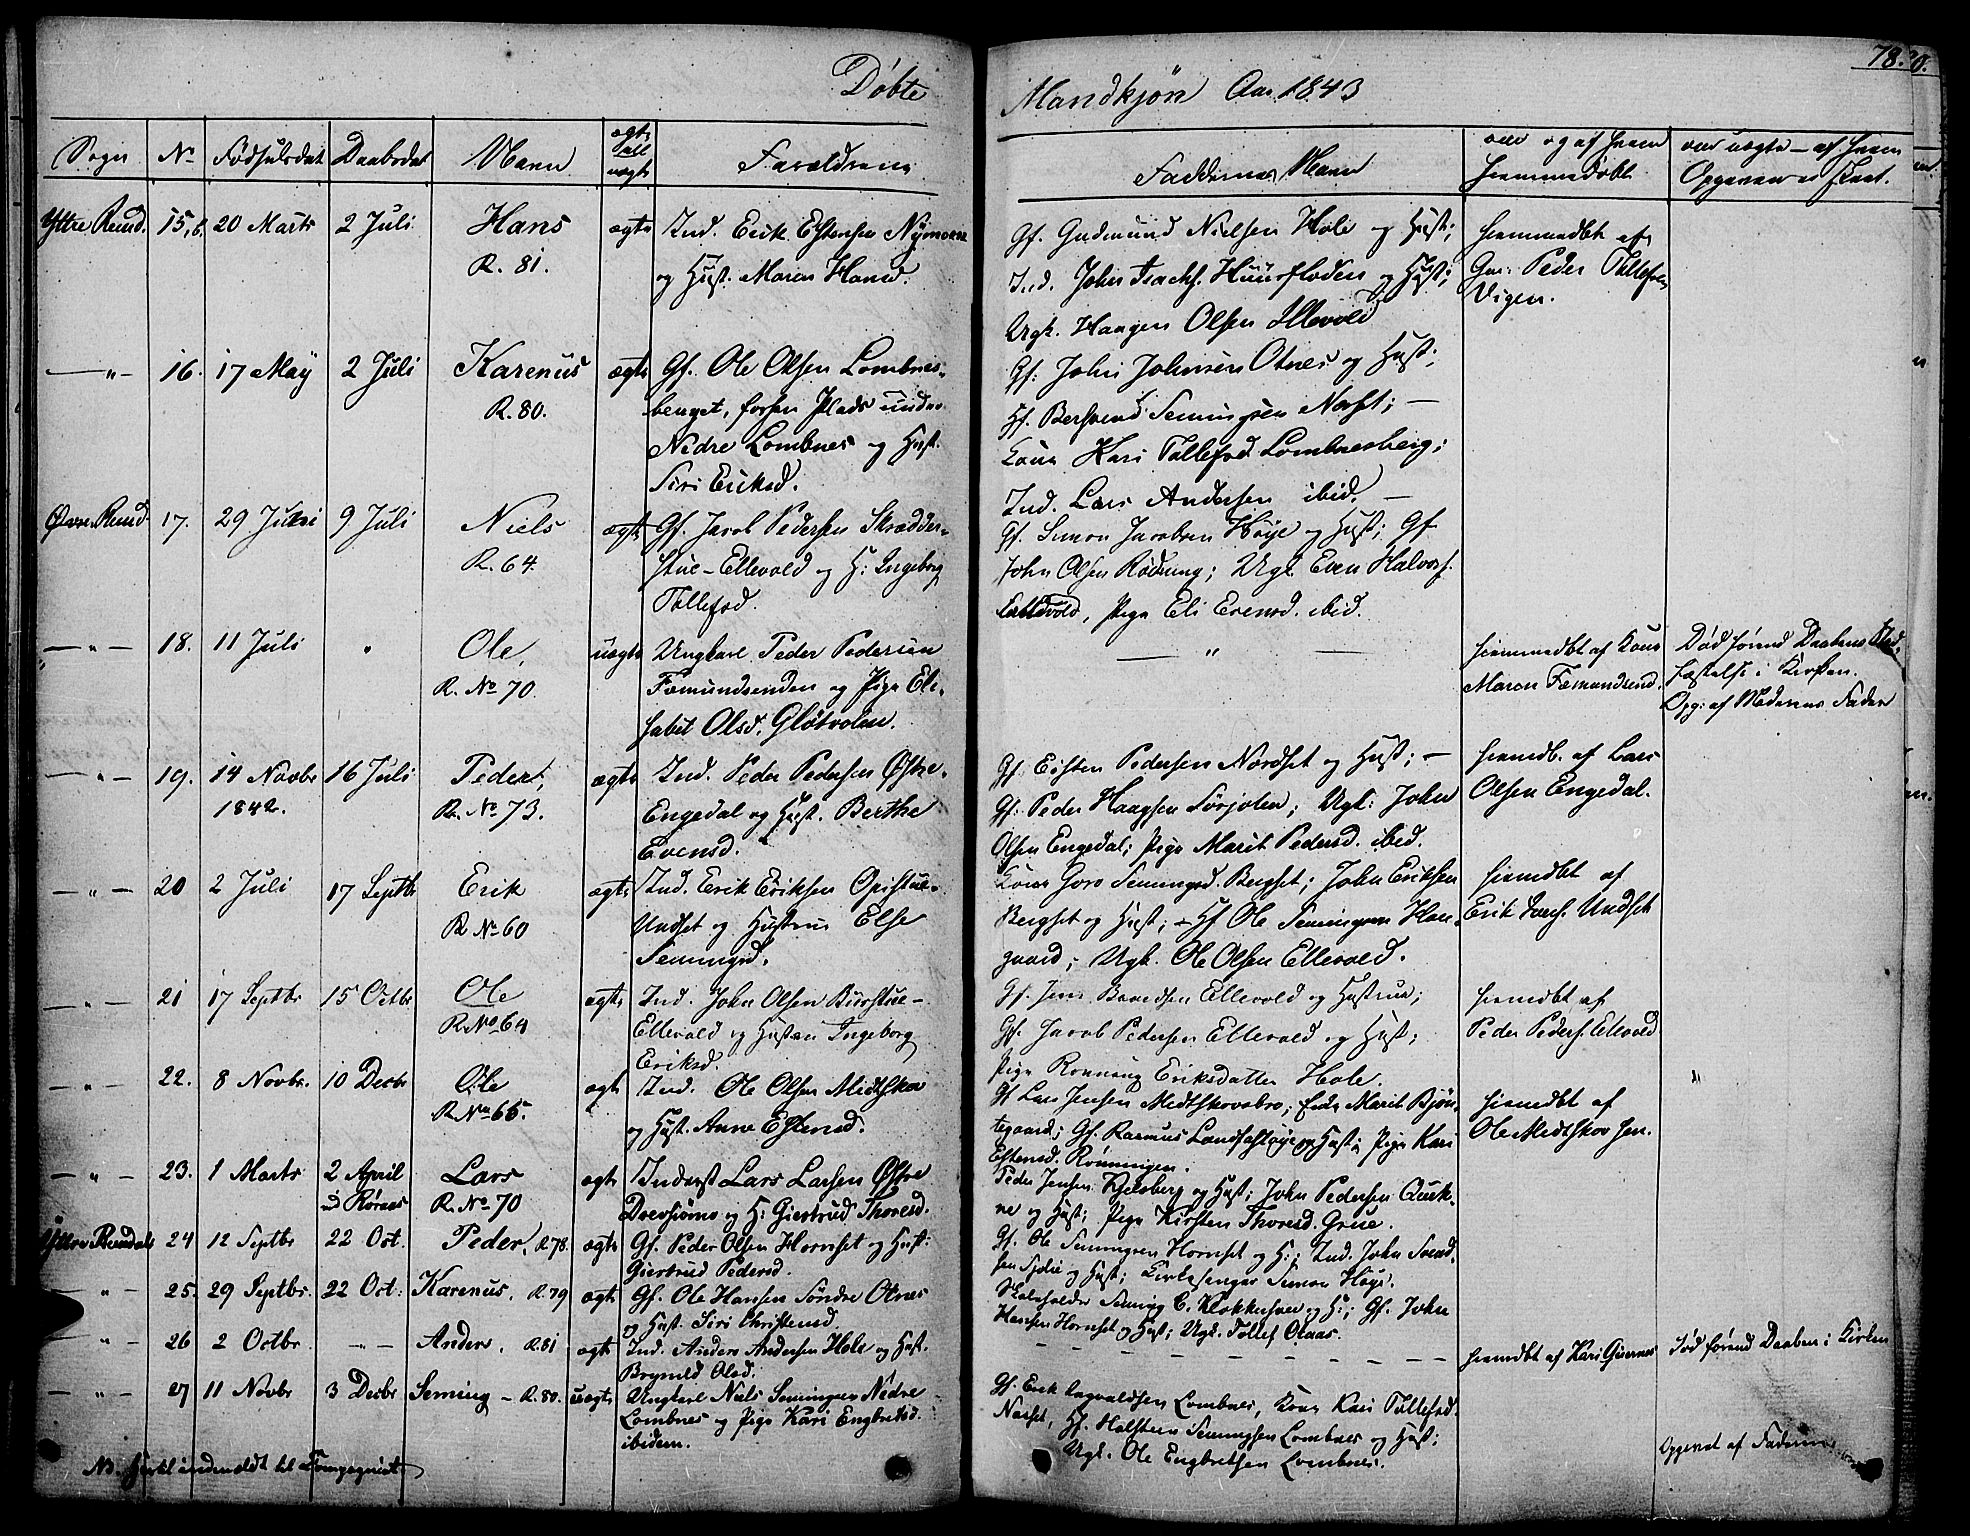 Døbte
Mandkjøn Aar 1843
78.
Sogn No Fødselsdat Daabsdat Navn ægte eller uægte Forældrene Faddernes Navne af hvem hjemmedøbt af hvem Opgaven er skeet.
Yttre Rend. 15, 6. 20 Marts 2 Juli Hans ægte Ind. Erik Estensen Nymoen
R. 81. og Hust. Maren Hansd.
Gf. Gudmund Nielsen Hole og Hust;
Ind. John Isachs. Huusfloden og Hust;
Ugk. Haagen Olsen Illevold
hiemmedbt af
Gm: Peder Tollefsen
Vigen.
— " — 16. 17 May 2 Juli Karenus ægte Gf. Ole Olsen Lombnes-
R. 80. berget, forhen Plads under
Nedre Lombnes og Hust.
Siri Eriksd.
Gf. John Johnsen Otnes og Hust;
Gf. Bersvend Semingsen Næsset; —
Kone Kari Tollefsd Lombnesberg;
Ind. Lars Andersen ibid. —
Øvre Rend. 17. 29 Juni 9 Juli Niels ægte Gf. Jacob Pedersen Skrædder-
R. 64. stue-Ellevold og H: Ingeborg
Tollefsd.
Gf. Simon Jacobsen Høye og Hust; Gf
John Olsen Rødsung; Ugk. Even Halvors.
Pige Eli Evensd. ibid.
— " — 18. 11 Juli " Ole, uægte Ungkarl Peder Pedersen
R. No 70. Fæmundsenden og Pige Eli-
sabet Olsd. Gløtvolen.
— " —
hiemmedbt af Kone
Maren Fæmundsend.
Død førend Daabens Stad-
fæstelse i Kirken.
Opg: af Moderens Fader
— " — 19. 14 Novbr 16 Juli Peder, ægte Ind. Peder Pedersen Østre-
1842. R. No 73. Engedal og Hust. Berthe
Evensd.
Gf. Eisten Pedersen Nordset og Hust; —
Gf: Peder Haagsen Sørjolen; Ugk: John
Olsen Engedal; Pige Marit Pedersd. ibid.
hiemdb. af Lars
Olsen Engedal.
— " — 20 2 Juli 17 Septbr Erik ægte Ind. Erik Eriksen Opistue-
R No 60 Undset og Hustru Else
Semingsd.
Kone Goro Semingsd. Bergset; John Eriksen
Bergset og Hust; Gf Ole Semingsen Hau-
gaard; Ugk. Ole Olsen Ellevold.
hiemdbt af
Erik Undset
— " — 21 17 Septbr 15 Octbr Ole ægte Ind. John Olsen Burstue-
R No 64 Ellevold og Hustru Ingeborg
Eriksd.
Gf. Jens Baardsen Ellevold og Hustrue;
Gf. Jacob Pedersen Ellevold og Hust;
Pige Rønnaug Eriksdatter Hole.
hiemdbt af
Peder Peders. Ellevold
— " — 22. 8 Novbr. 10 Decbr Ole ægte Ind. Ole Olsen Midtskov
R No 65. og Hust. Anne Estensd.
Gf Lars Jensen Midtskovsbro; Enke Marit Bjøn-
tegaard; Gf. Rasmus Landsastøye og Hust; Pige Kari
Estensd. Rønningen.
hiemdbt af
Ole Midtskov sen.
— " — 23. 1 Marts 2 April Lars ægte Inderst Lars Larsen Østre
i Røraas R. No 70 Drevsiømo og H: Giertrud Thoresd.
Peder Jensen Kjelsberg og Hust; John Pedersen Qvek-
ne og Hust; Pige Kirsten Thoresd. Grue.
Yttre Rendal 24 12 Septbr 22 Oct. Peder, R.78. ægte Gf. Peder Olsen Hornset og Hust:
Giertrud Pedersd.
Gf. Ole Semingsen Hornset og H:; Ind. John Svend-
sen Sjølie og Hust; Kirkesanger Simon Høye.
— " — 25. 29 Septbr. 22 Oct: Karenus, R.79 ægte Gf. Ole Hansen Søndre Otnes
og Hust. Siri Christensd.
Skoleholder Seming C. Klokkerhuen og H:; Gf. John
Hansen Hornset og Hust; Ugk. Tollef Olsen.
— " — 26 2 Octbr. — " — Anders, R.81 ægte Ind. Anders Andersen Hole og Hust.
Bryneld Olsd.
hiemdbt af Kari Død førend Daaben i Kirken
— " — 27 11 Novbr 3 Decbr Seming — R.80. uægte Ungkarl Niels Semingsen Nedre
Lombnes og Pige Kari Engbretsd.
ibidem.
Gf. Erik Lombnes, Kone Kari Tollefsd.
Næsset, Gf. Halsten Semingsen Lombnes og Hust;
Ugk. Ole Engbretsen Lombnes.
Opgivet af Faderen
NB. hertil indmeldt til